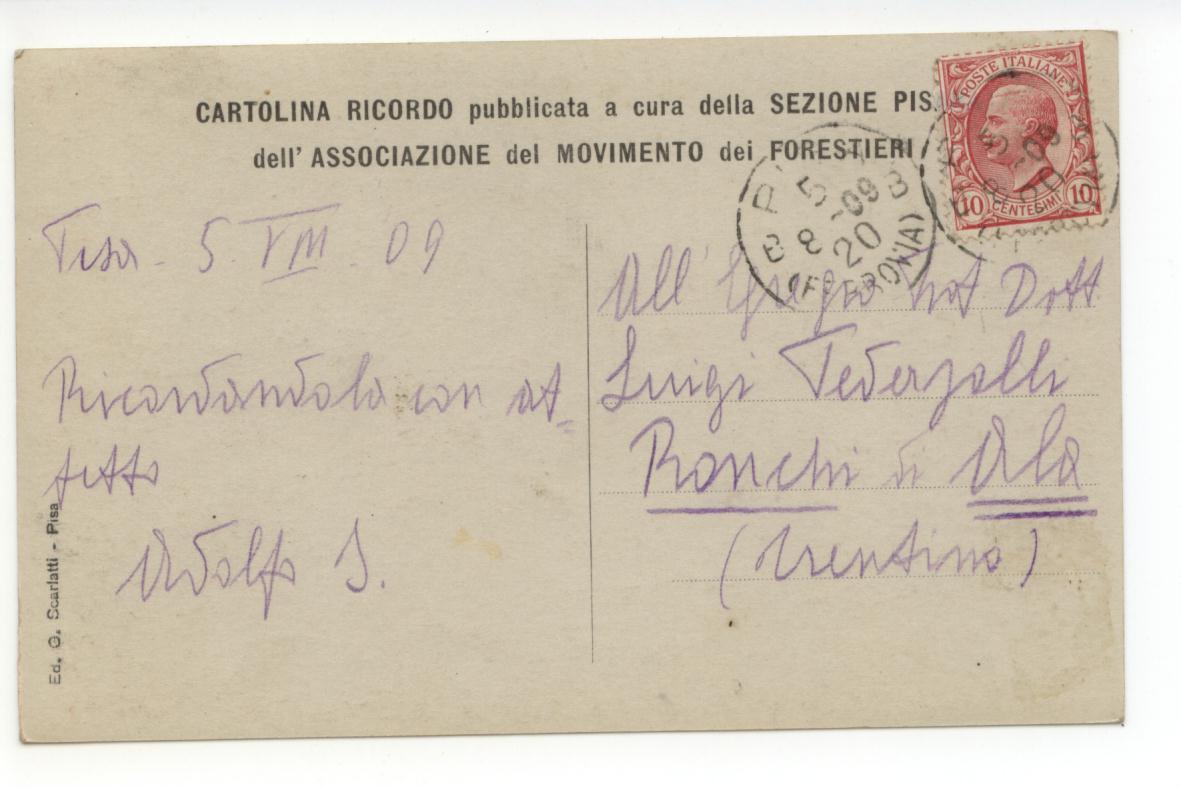 CARTOLINA RICORDO pubblicata a cura della SEZIONE PIS
dell' ASSOCIAZIONE del MOVIMENTO dei FORESTIERI
POSTE ITALIANE
10 CENTESIMI 10
5
8 - 09
20
(FERROVIA)
Pisa - 5. VIII. 09
Ricordandola con af=
fetto
Adolfo S.
All' Egregio Dott
Luigi Pederzolli
Ronchi di Ala
(Trentino)
Ed. G. Scarlatti - Pisa